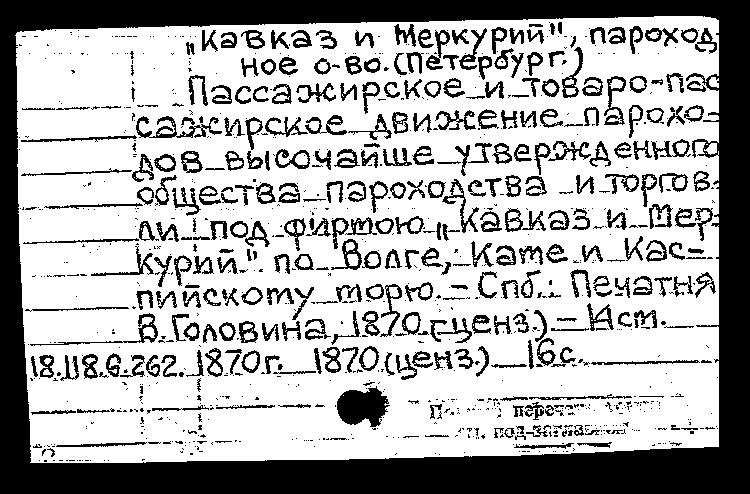 „Кавказ и Меркурий", пароход-
ное о-во. (Петербург.)
Пассажирское и товаро-пас
сажирское движение парохо-
дов высочайше утвержденного
общества пароходства и торгов-
ли под фирмою „Кавказ и Мер-
курий". по Волге, Каме и Кас-
пийскому морю. - Спб.: Печатня
В. Головина, 1870 (ценз.) - 14 см.
18.118.6.262. 1870 г. 1870 (ценз.) 16 с.